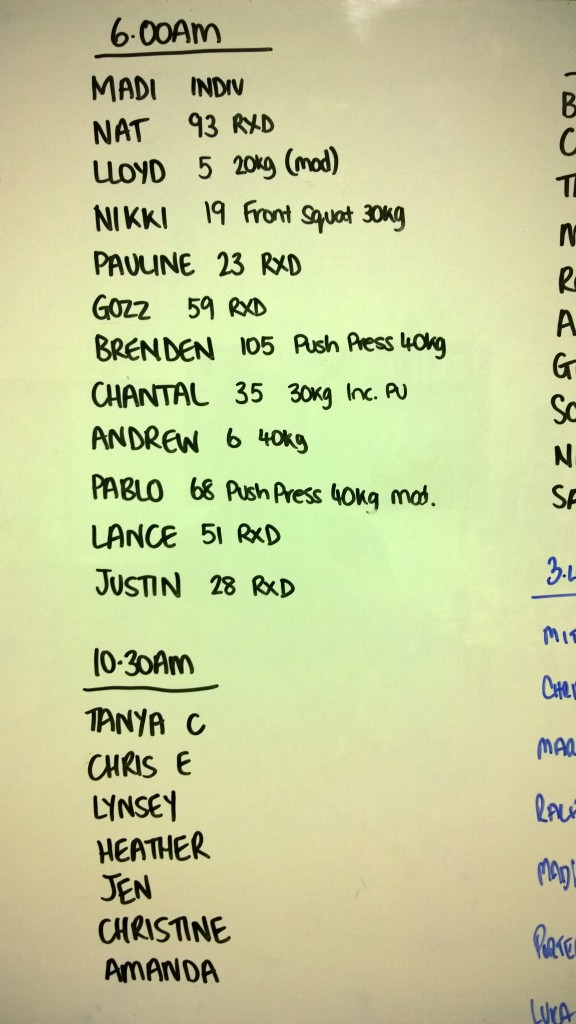 6.00AM
MADI INDIV
NAT 93 RXD
LLOYD 5 20kg (mod)
NIKKI 19 Front Squat 30kg
PAULINE 23 RXD
GOZZ 59 RXD
BRENDEN 105 Push Press 40kg
CHANTAL 35 30kg Inc. PU
ANDREW 6 40kg
PABLO 68 Push Press 40kg mod.
LANCE 51 RXD
JUSTIN 28 RXD
10.30AM
TANYA C
CHRIS E
LYNSEY
HEATHER
JEN
CHRISTINE
AMANDA